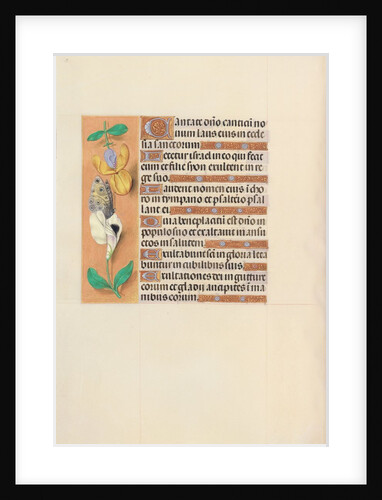 Cantate dño canticũ no
uum laus eius in eccle
sia sanctorum
Letetur israel in eo qui fecit
eum et filie syon exultent in re
ge suo.
Laudent nomen eius ĩ cho
ro in tympano et psalterio psal
lant ei
Quia beneplacitũ est dño in
populo suo et exaltauit mansu
etos in salutem
Exultabunt sci in gloria leta
buntur in cubilibus suis
Exultationes dei in gutture
eorum et gladii ancipites ĩ ma
nibus eorum.